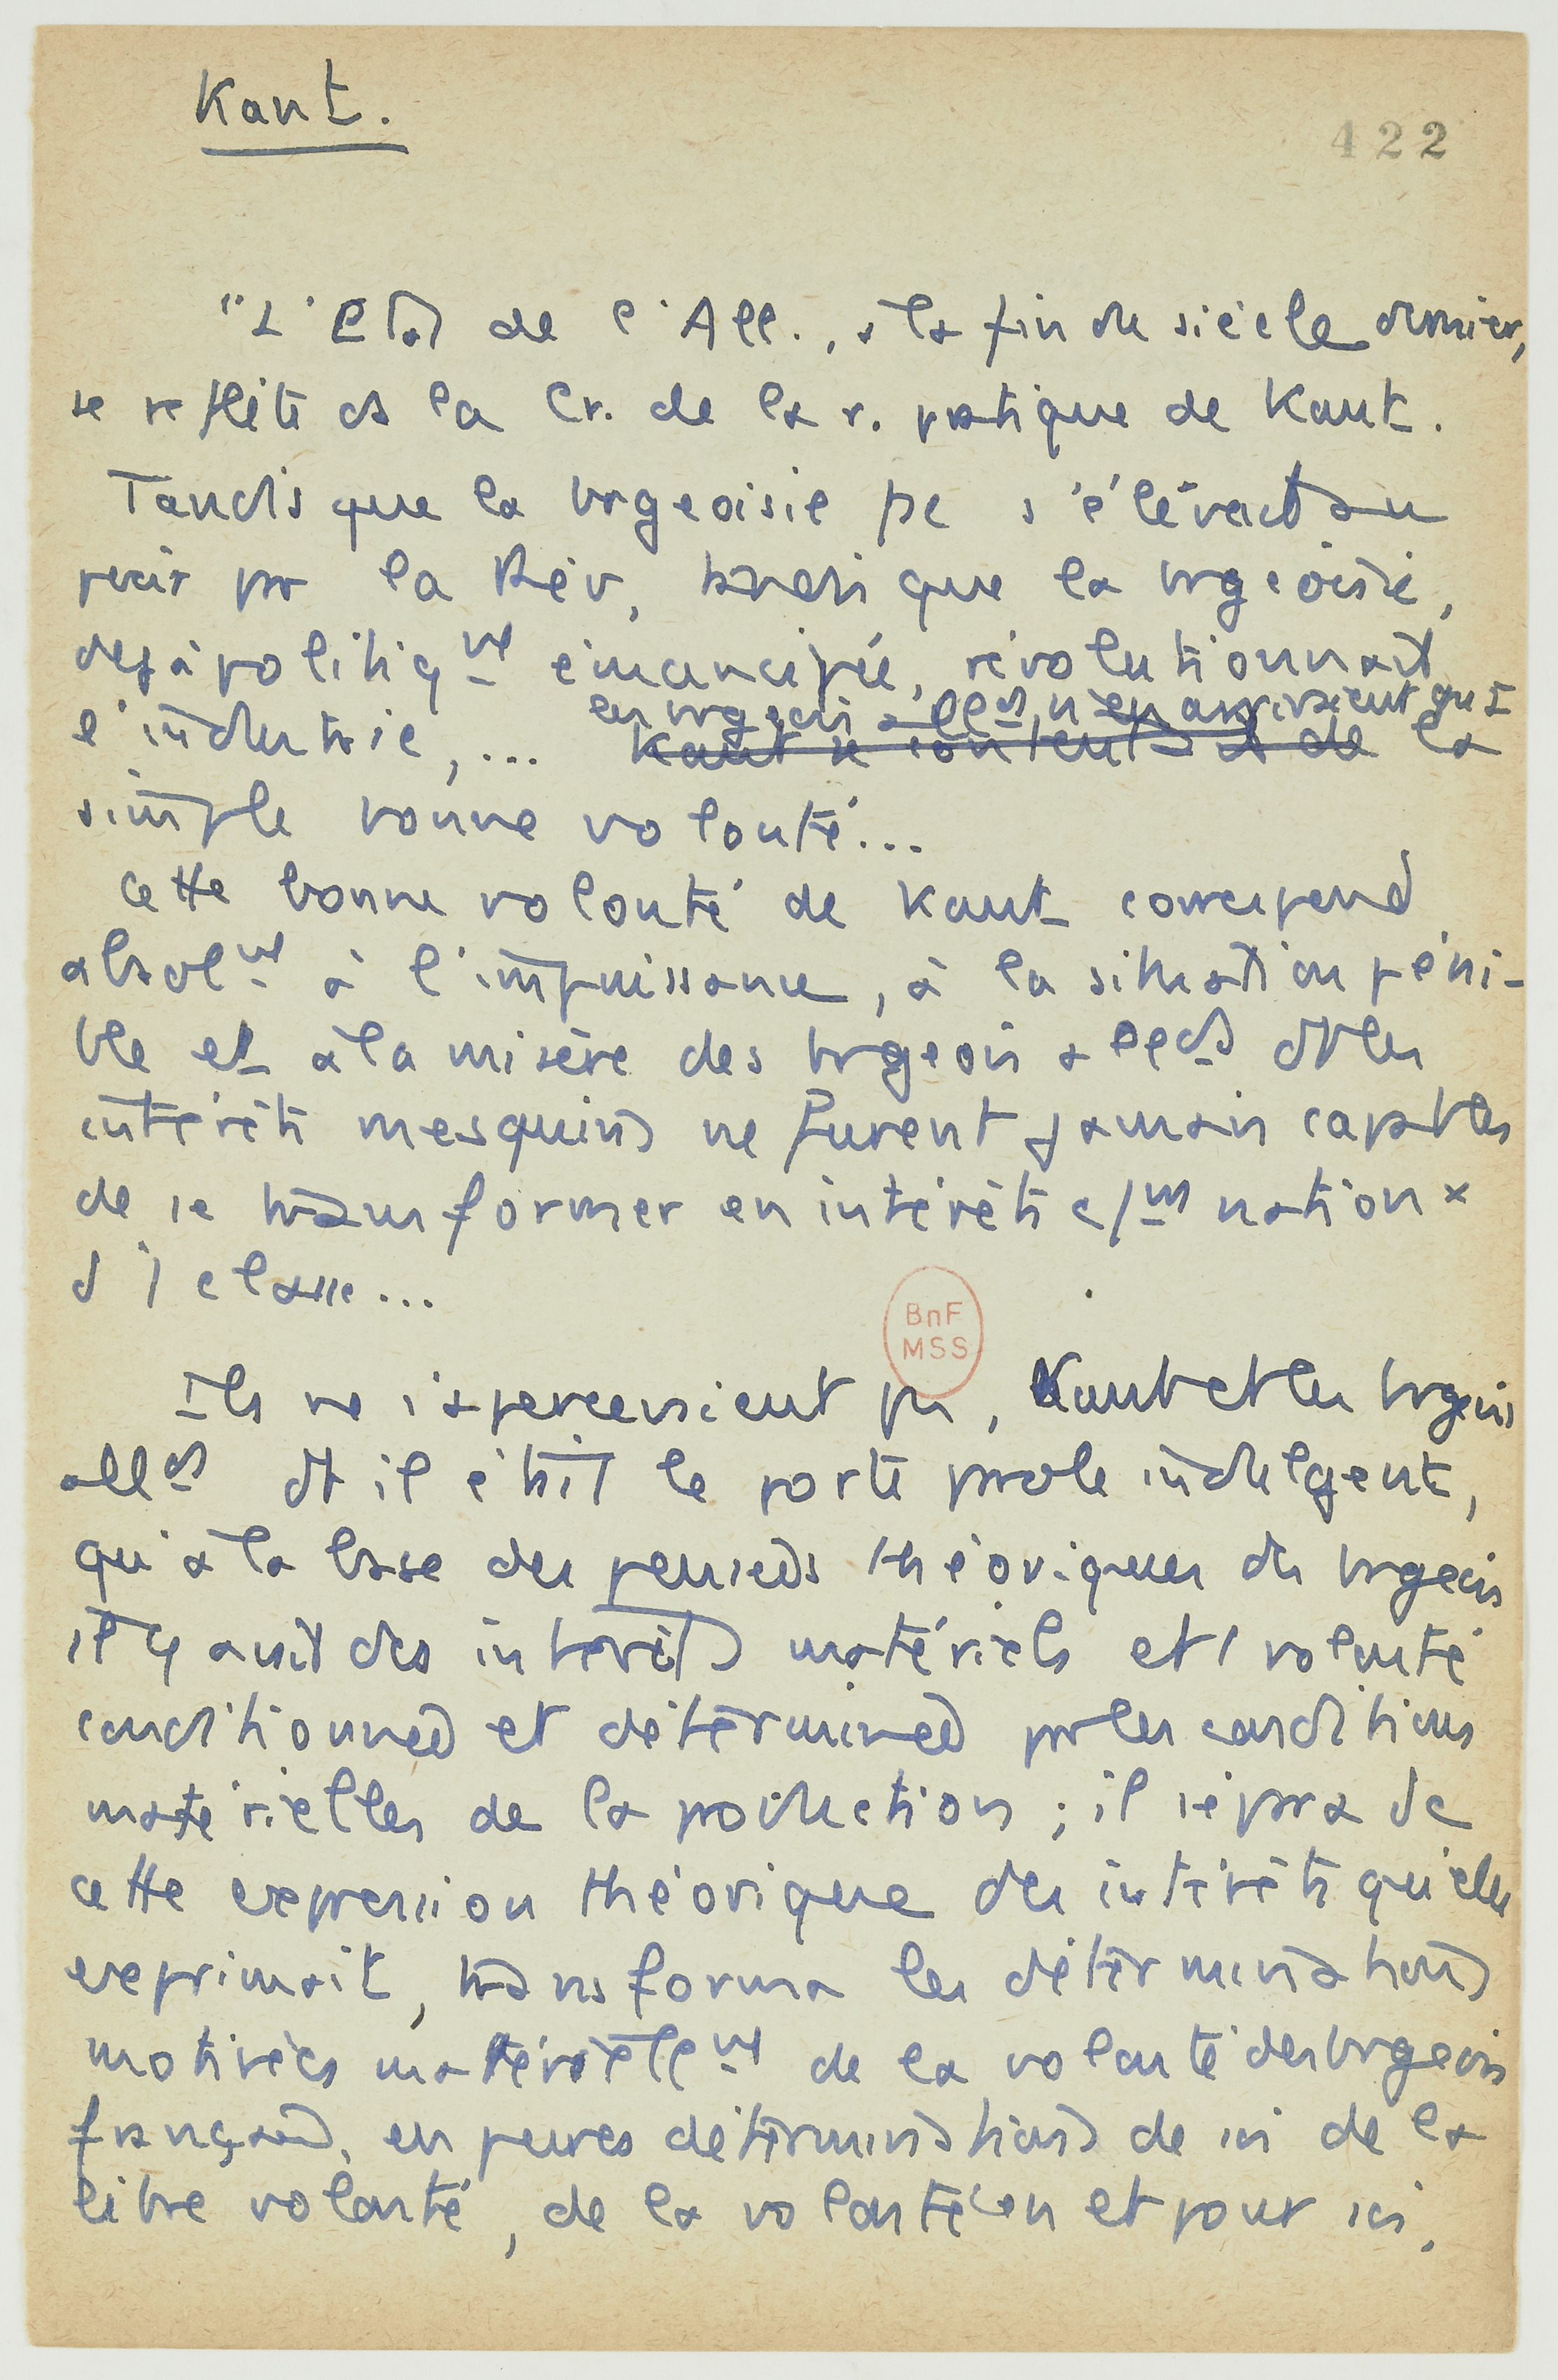 Kant.
422
"L'Etat de l'All., à la fin du siècle dernier,
se reflète ds la Cr. de la r. pratique de Kant.
Tandis que la brgeoisie fse s'élevait au
pvoir pr la Rév, tandis que la brgeoisie,
déjà politiqmt émancipée, révolutionnait
l'industrie, ... Kant se contentait de la
les brgeois allds n'en arrivaient qu'à
simple bonne volonté...
Cette bonne volonté de Kant correspond
absolmt à l'impuissance, à la situation péni-
ble et à la misère des brgeois allds dt les
intérêts mesquins ne furent jamais capables
de se transformer en intérêts c/ms nationx
d'1 classe...
BnF
MSS
Ils ne s'apercevaient pas, Kant et les brgeois
allds dt il était le porte parole indulgent,
qu'à la base des pensées théoriques des brgeois
il y avait des intérêts matériels et 1 volonté
conditionnée et déterminée pr les conditions
matérielles de la production ; il sépara de
cette expression théorique des intérêts qu'elle
exprimait, transforma les déterminations
motivées matériellemt de la volonté des brgeois
français, en pures déterminations de soi de la
libre volonté, de la volonté en et pour soi,